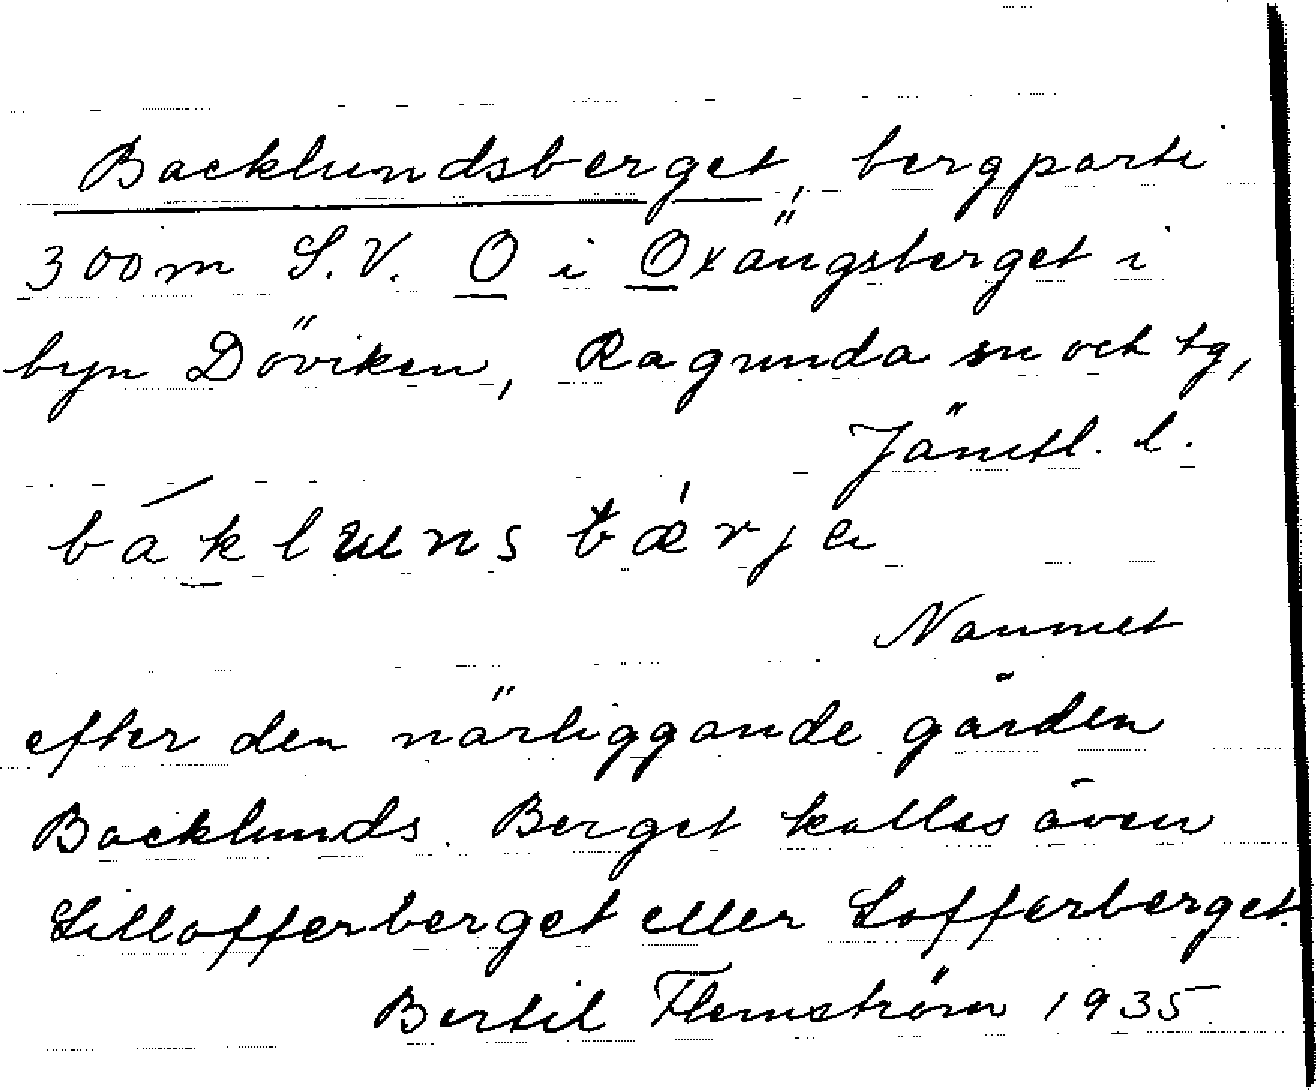 Backlundsberget, bergparti
300 m S.V. O i Oxängsberget i
byn Döviken, Ragunda sn och tg,
Jämtl. l.
bák̲luns bǽrjɐ
Namnet
efter den närliggande gården
Backlunds. Berget kallas även
Lillofferberget eller Lofferberget.
Bertil Flemström 1935